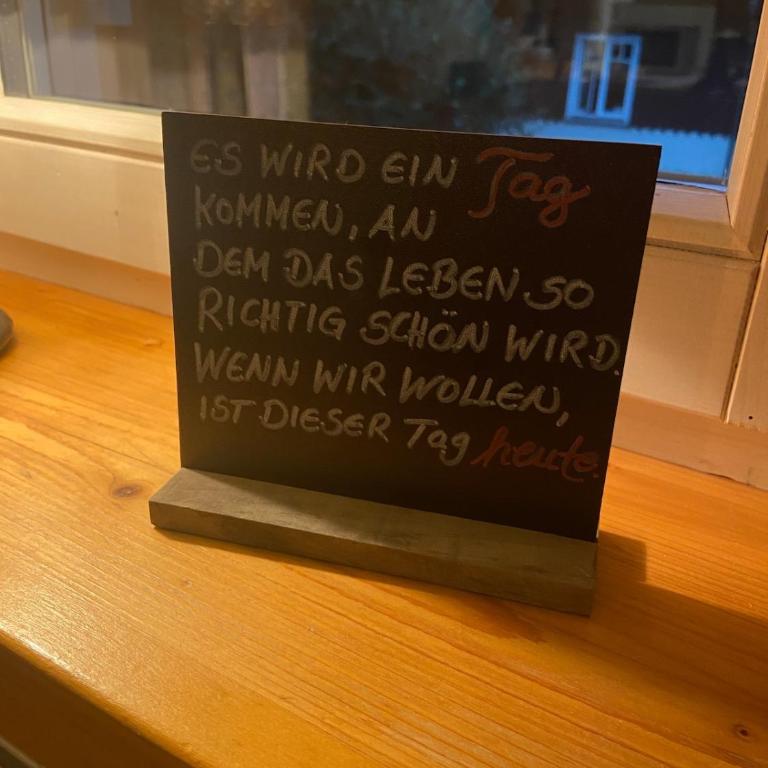 ES WIRD EIN Tag
KOMMEN, AN
DEM DAS LEBEN SO
RICHTIG SCHÖN WIRD.
WENN WIR WOLLEN,
IST DIESER Tag heute.